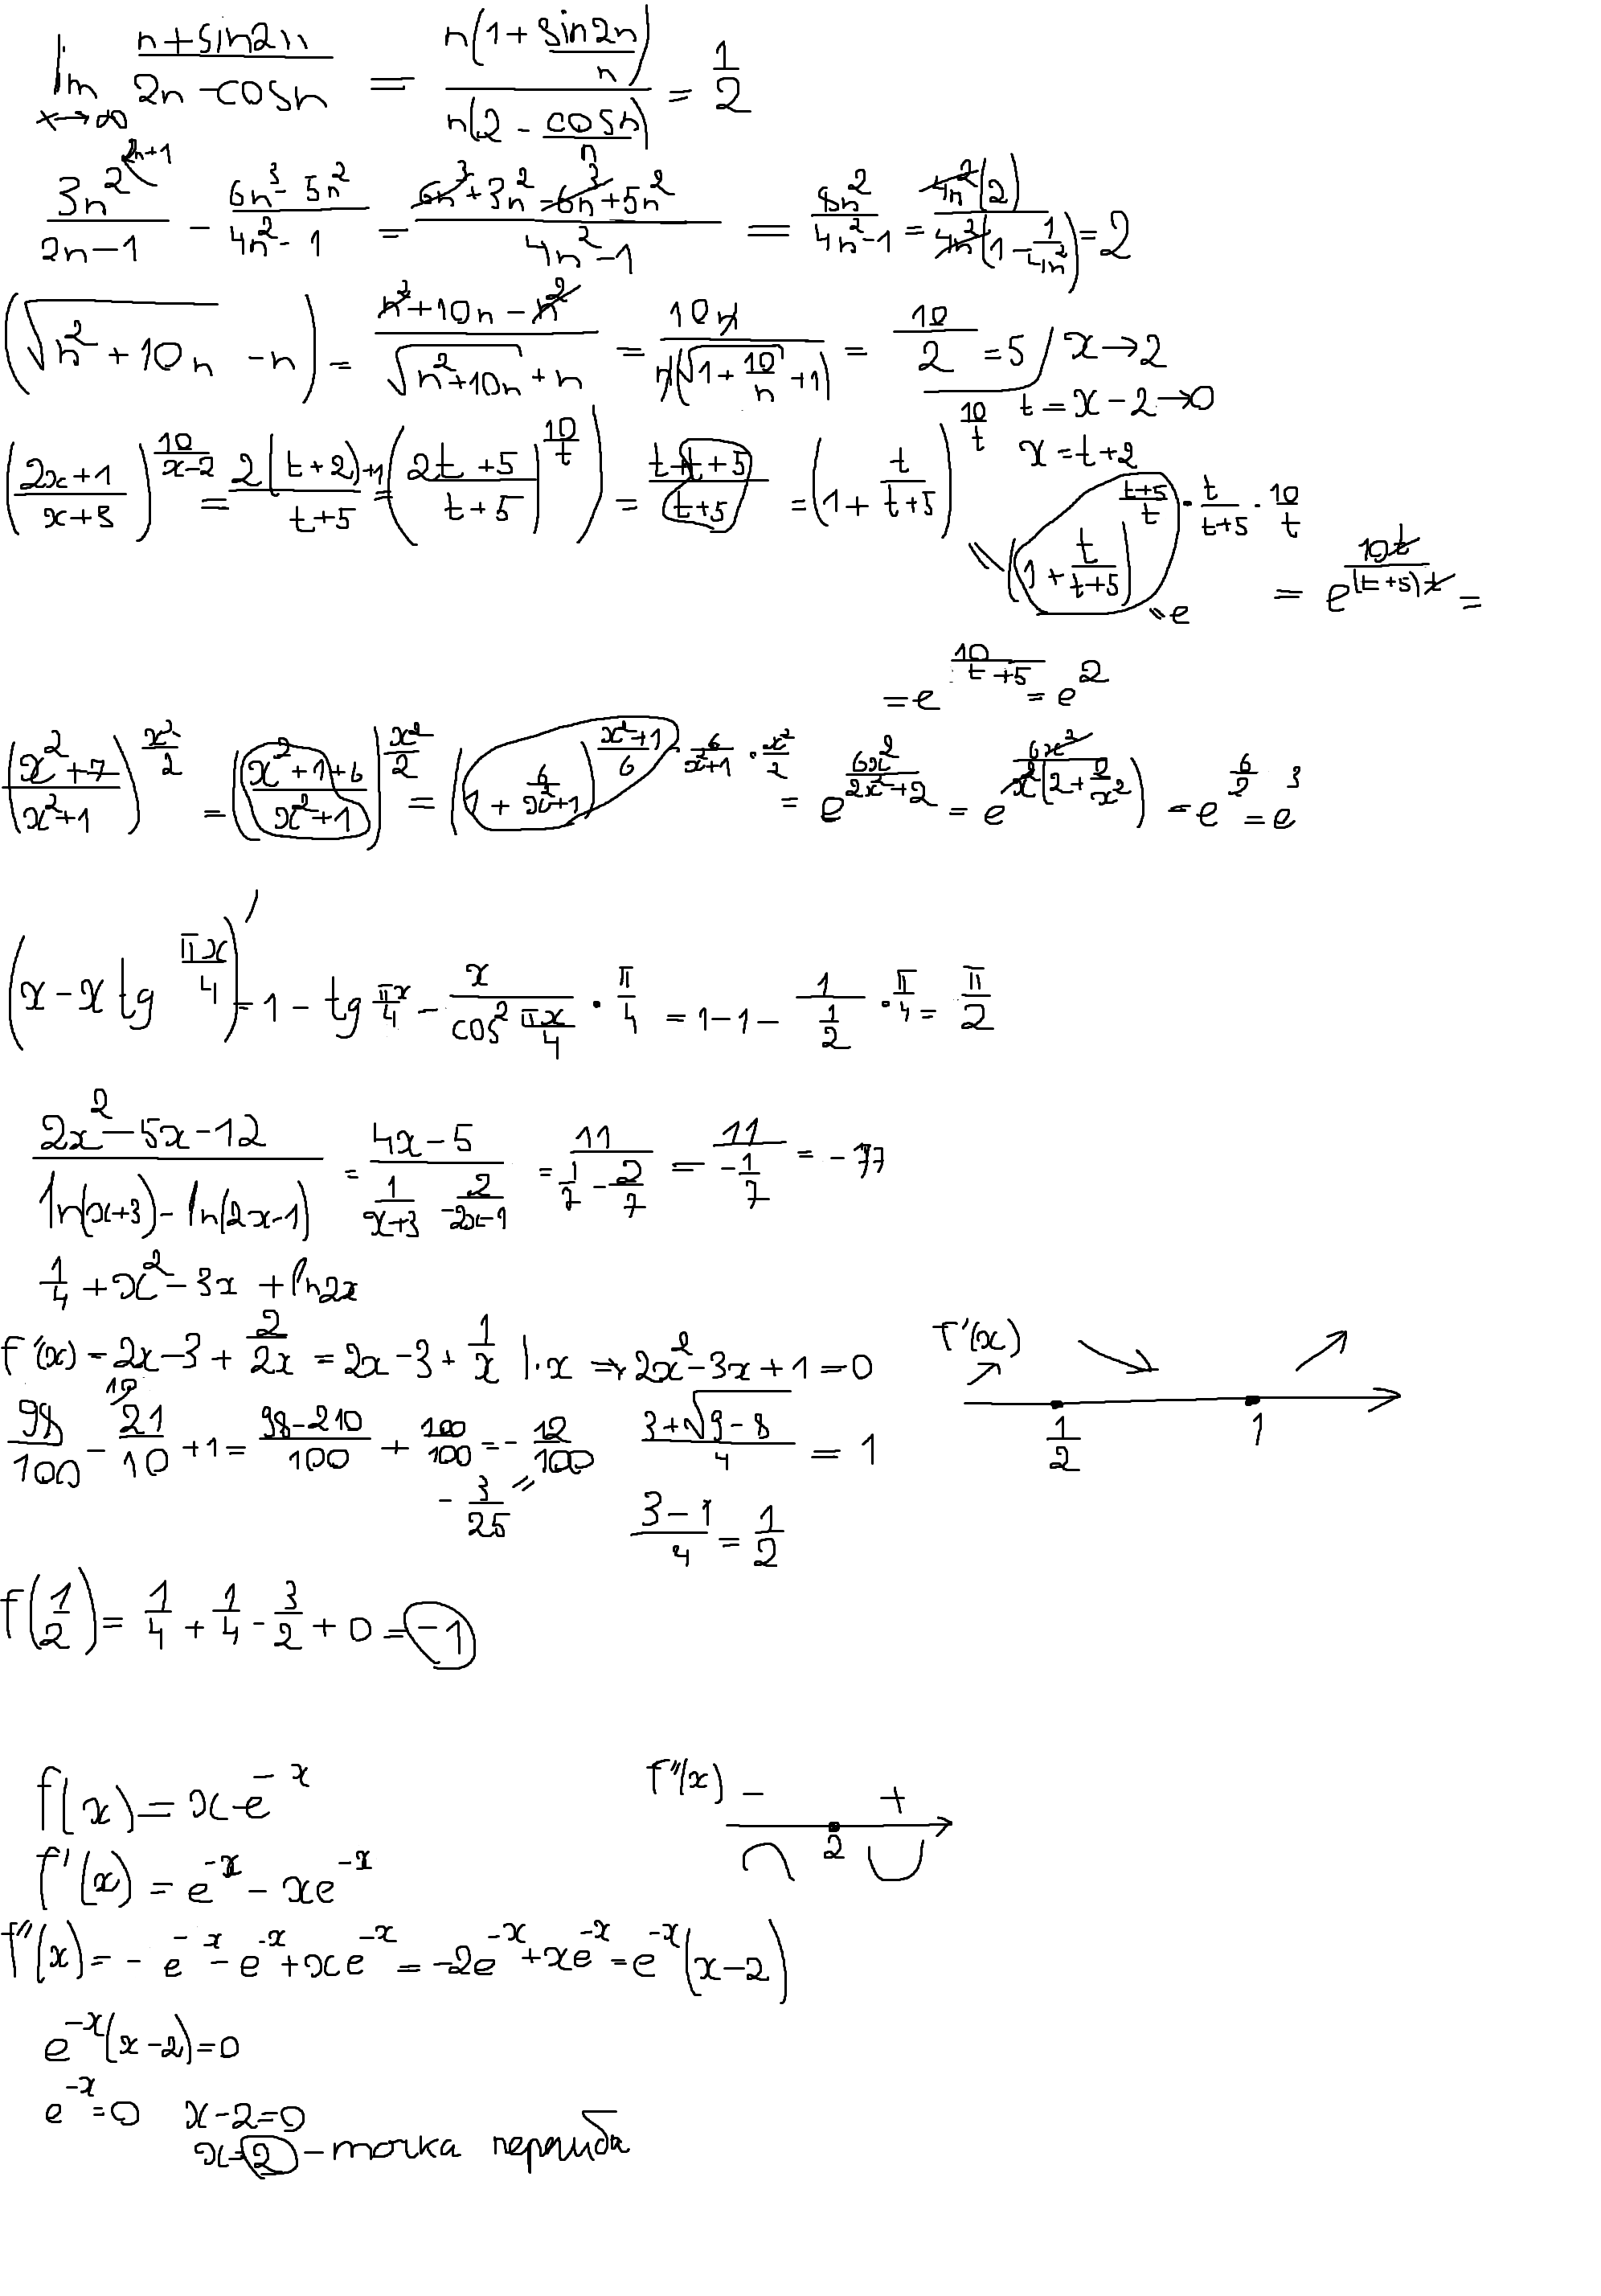 lim x→∞ (n+sin2n)/(2n-cosn) = n(1+sin2n/n)/n(2-cosn/n) = 1/2
3n²^(2n+1)/(2n-1) - (6n³-5n²)/(4n²-1) = (6n³+3n²-6n³+5n²)/(4n²-1) = 8n²/(4n²-1) = 4n²(2)/4n²(1-1/4n²) = 2
(√(n²+10n) -n) = (n²+10n-n²)/(√(n²+10n)+n) = 10n/n(√(1+10/n)+1) = 10/2 = 5 / x→2
t=x-2→0
x=t+2
((2x+1)/(x+3))^(10/(x-2)) = (2(t+2)+1)/(t+5) = ((2t+5)/(t+5))^(10/t) = (t+t+5)/(t+5) = (1+t/(t+5))^(10/t)
= (1+t/(t+5))^((t+5)/t · t/(t+5) · 10/t) = e^(10t/((t+5)t)) =
= e
= e^(10/(t+5)) = e²
((x²+7)/(x²+1))^(x²/2) = ((x²+1+6)/(x²+1))^(x²/2) = (1+6/(x²+1))^((x²+1)/6 · 6/(x²+1) · x²/2) = e^(6x²/(2x²+2)) = e^(6x²/x²(2+2/x²)) = e^(6/2) = e³
(x-x tg πx/4)' = 1 - tg πx/4 - x/(cos² πx/4) · π/4 = 1-1- 1/(1/2) · π/4 = π/2
(2x²-5x-12)/(ln(x+3)-ln(2x-1)) = (4x-5)/(1/(x+3) - 2/(2x-1)) = 11/(1/7 - 2/7) = 11/(-1/7) = -77
1/4 + x² - 3x + ln2x
f'(x) = 2x-3+2/2x = 2x-3+1/x |·x ⇒ 2x²-3x+1=0
f'(x)
1/2 1
98/100 - 21/10 ^10 + 1 = (98-210)/100 + 100/100 = -12/100
= -3/25
(3+√(9-8))/4 = 1
(3-1)/4 = 1/2
f(1/2) = 1/4 + 1/4 - 3/2 + 0 = -1
f(x) = x·e^(-x)
f''(x) - +
2
f'(x) = e^(-x) - xe^(-x)
f''(x) = -e^(-x) - e^(-x) + xe^(-x) = -2e^(-x) + xe^(-x) = e^(-x)(x-2)
e^(-x)(x-2)=0
e^(-x)=0 x-2=0
x=2 - точка перегиба